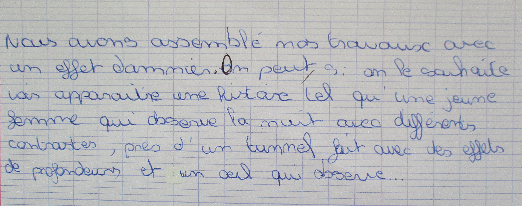 Nous avons assemblé nos travaux avec
un effet damnier. On peut, si on le souhaite
voir apparaitre une tel qu'une jeune
femme qui observe la nuit avec différents
contrastes, près d'un tunnel fait avec des effets
de profondeurs et un oeil qui observe...